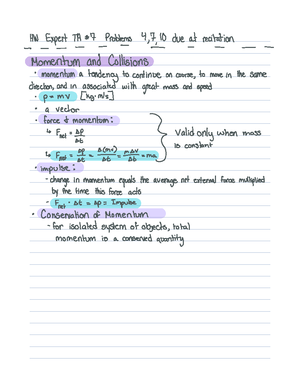 HW Expert TA #7 Problems 4,7,10 due at recitation
Momentum and Collisions
· momentum a tendency to continue on course, to move in the same
direction, and is associated with great mass and speed
· p = mv [kg·m/s]
· a vector
· force & momentum:
↳ Fnet = Δp/Δt
↳ Fnet = Δp/Δt = Δ(mv)/Δt = mΔv/Δt = ma
Valid only when mass
is constant
· impulse:
- change in momentum equals the average net external forces multiplied
by the time this force acts
- Fnet · Δt = Δp = Impulse
· Conservation of Momentum
- for isolated system of objects, total
momentum is a conserved quantity